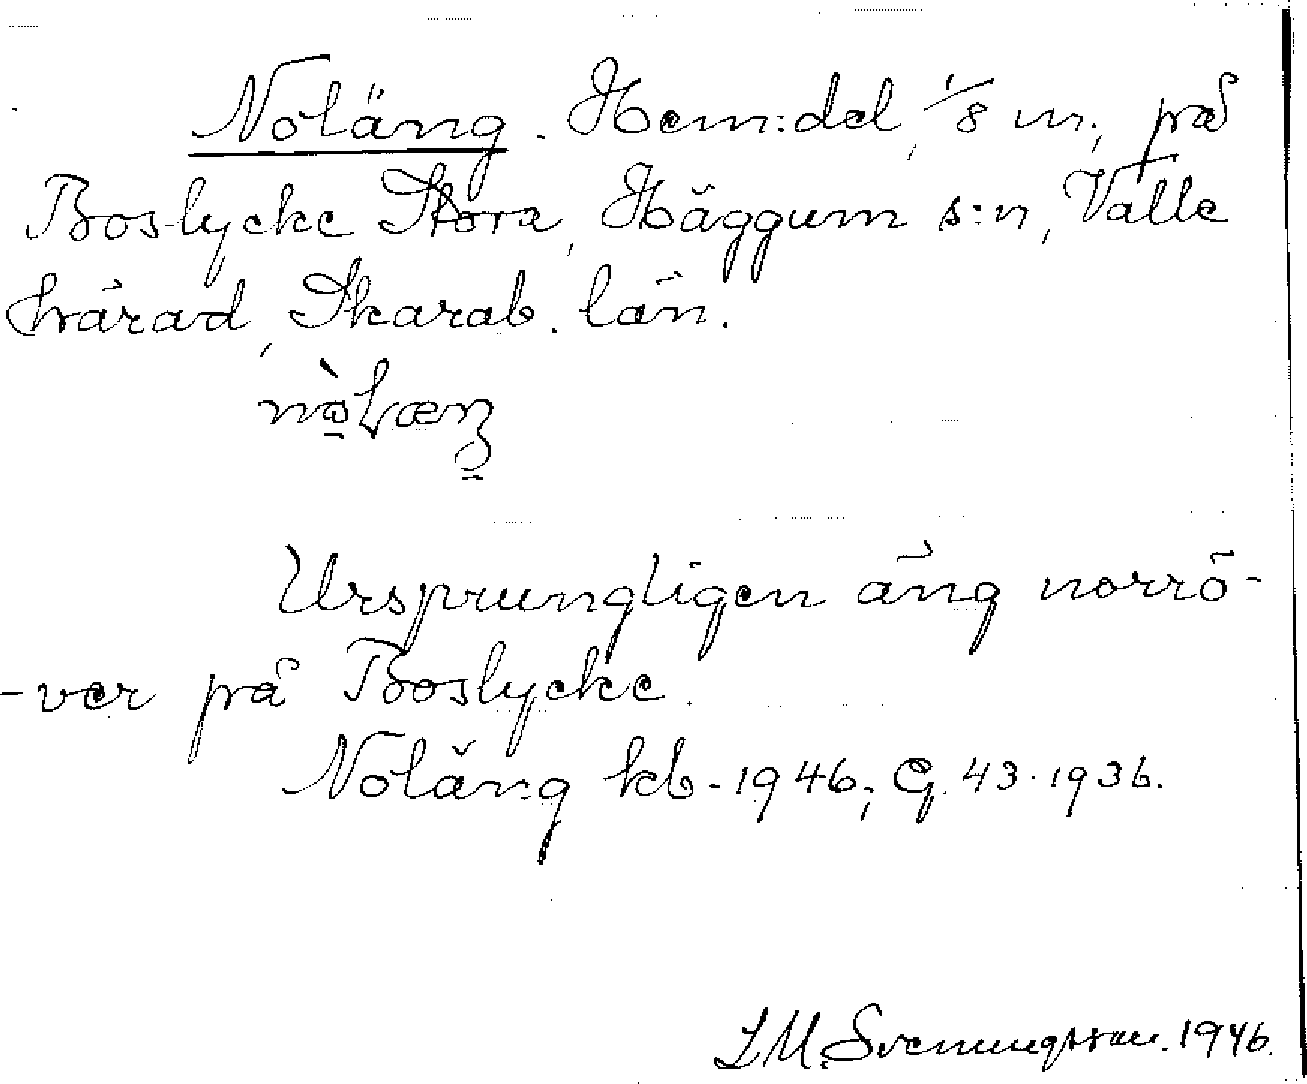 Noläng. Hem:del, 1/8 m, på
Boslycke Stora, Häggum s:n, Valle
härad, Skarab. län.
Ursprungligen äng norrö-
-ver på Boslycke.
Noläng kb-1946; G. 43. 1936.
S M Svenungsson. 1946.